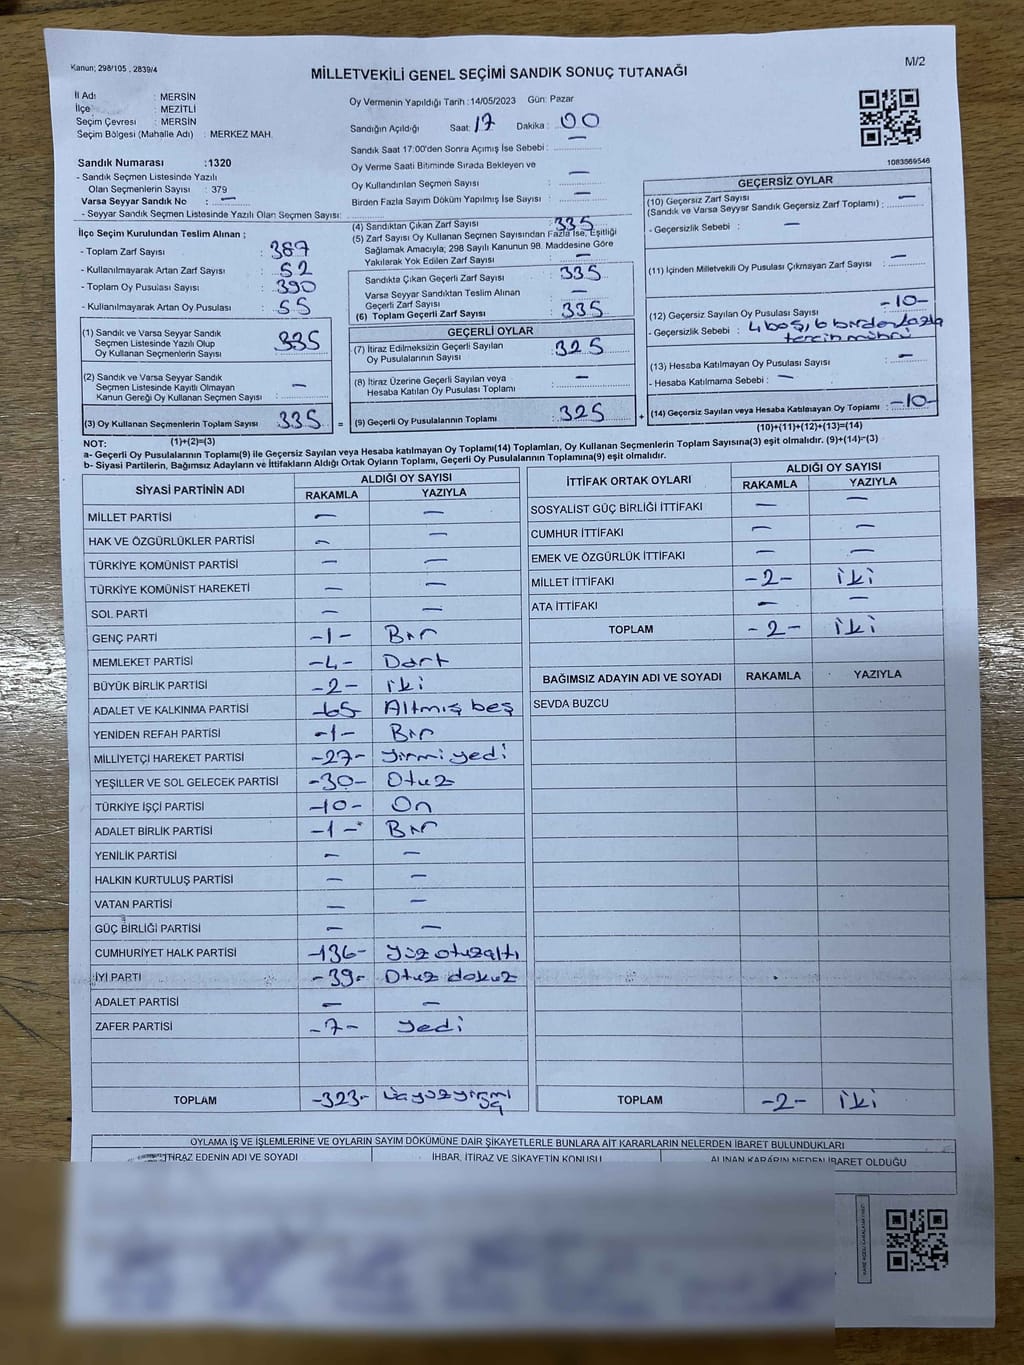 Kanun; 298/105 , 2839/4
M/2
MİLLETVEKİLİ GENEL SEÇİMİ SANDIK SONUÇ TUTANAĞI
İl Adı : MERSİN
İlçe : MEZİTLİ
Seçim Çevresi : MERSİN
Seçim Bölgesi (Mahalle Adı) : MERKEZ MAH.
Sandık Numarası :1320
- Sandık Seçmen Listesinde Yazılı
Olan Seçmenlerin Sayısı : 379
Varsa Seyyar Sandık No : —
- Seyyar Sandık Seçmen Listesinde Yazılı Olan Seçmen Sayısı:
Oy Vermenin Yapıldığı Tarih :14/05/2023 Gün: Pazar
Sandığın Açıldığı Saat: 17 Dakika : 00
Sandık Saat 17:00'den Sonra Açımış İse Sebebi : —
Oy Verme Saati Bitiminde Sırada Bekleyen ve
Oy Kullandırılan Seçmen Sayısı : —
Birden Fazla Sayım Döküm Yapılmış İse Sayısı : —
1083569546
İlçe Seçim Kurulundan Teslim Alınan ;
- Toplam Zarf Sayısı : 387
- Kullanılmayarak Artan Zarf Sayısı : 52
- Toplam Oy Pusulası Sayısı : 390
- Kullanılmayarak Artan Oy Pusulası : 55
(1) Sandık ve Varsa Seyyar Sandık
Seçmen Listesinde Yazılı Olup
Oy Kullanan Seçmenlerin Sayısı : 335
(2) Sandık ve Varsa Seyyar Sandık
Seçmen Listesinde Kayıtlı Olmayan
Kanun Gereği Oy Kullanan Seçmen Sayısı : —
(3) Oy Kullanan Seçmenlerin Toplam Sayısı : 335
(1)+(2)=(3)
(4) Sandıktan Çıkan Zarf Sayısı : 335
(5) Zarf Sayısı Oy Kullanan Seçmen Sayısından Fazla İse, Eşitliği
Sağlamak Amacıyla; 298 Sayılı Kanunun 98. Maddesine Göre
Yakılarak Yok Edilen Zarf Sayısı : —
Sandıkta Çıkan Geçerli Zarf Sayısı : 335
Varsa Seyyar Sandıktan Teslim Alınan
Geçerli Zarf Sayısı : —
(6) Toplam Geçerli Zarf Sayısı : 335
GEÇERLİ OYLAR
(7) İtiraz Edilmeksizin Geçerli Sayılan
Oy Pusulalarının Sayısı : 325
(8) İtiraz Üzerine Geçerli Sayılan veya
Hesaba Katılan Oy Pusulası Toplamı : —
= (9) Geçerli Oy Pusulalarının Toplamı : 325 +
GEÇERSİZ OYLAR
(10) Geçersiz Zarf Sayısı
(Sandık ve Varsa Seyyar Sandık Geçersiz Zarf Toplamı) : —
- Geçersizlik Sebebi : —
(11) İçinden Milletvekili Oy Pusulası Çıkmayan Zarf Sayısı : —
(12) Geçersiz Sayılan Oy Pusulası Sayısı : -10-
- Geçersizlik Sebebi : 4 boş, 6 birden fazla
tercih mührü
(13) Hesaba Katılmayan Oy Pusulası Sayısı : —
- Hesaba Katılmama Sebebi : —
(14) Geçersiz Sayılan veya Hesaba Katılmayan Oy Toplamı : -10-
(10)+(11)+(12)+(13)=(14)
NOT:
a- Geçerli Oy Pusulalarının Toplamı(9) ile Geçersiz Sayılan veya Hesaba katılmayan Oy Toplamı(14) Toplamları, Oy Kullanan Seçmenlerin Toplam Sayısına(3) eşit olmalıdır. (9)+(14)=(3)
b- Siyasi Partilerin, Bağımsız Adayların ve İttifakların Aldığı Ortak Oyların Toplamı, Geçerli Oy Pusulalarının Toplamına(9) eşit olmalıdır.
SİYASİ PARTİNİN ADI ALDIĞI OY SAYISI
RAKAMLA YAZIYLA
MİLLET PARTİSİ — —
HAK VE ÖZGÜRLÜKLER PARTİSİ — —
TÜRKİYE KOMÜNİST PARTİSİ — —
TÜRKİYE KOMÜNİST HAREKETİ — —
SOL PARTİ — —
GENÇ PARTİ -1- Bir
MEMLEKET PARTİSİ -4- Dört
BÜYÜK BİRLİK PARTİSİ -2- iki
ADALET VE KALKINMA PARTİSİ -65- Altmış beş
YENİDEN REFAH PARTİSİ -1- Bir
MİLLİYETÇİ HAREKET PARTİSİ -27- yirmi yedi
YEŞİLLER VE SOL GELECEK PARTİSİ -30- Otuz
TÜRKİYE İŞÇİ PARTİSİ -10- On
ADALET BİRLİK PARTİSİ -1- Bir
YENİLİK PARTİSİ — —
HALKIN KURTULUŞ PARTİSİ — —
VATAN PARTİSİ — —
GÜÇ BİRLİĞİ PARTİSİ — —
CUMHURİYET HALK PARTİSİ -136- yüz otuzaltı
İYİ PARTİ -39- Otuz dokuz
ADALET PARTİSİ — —
ZAFER PARTİSİ -7- yedi
TOPLAM -323- Üçyüzyirmi
üç
İTTİFAK ORTAK OYLARI ALDIĞI OY SAYISI
RAKAMLA YAZIYLA
SOSYALİST GÜÇ BİRLİĞİ İTTİFAKI — —
CUMHUR İTTİFAKI — —
EMEK VE ÖZGÜRLÜK İTTİFAKI — —
MİLLET İTTİFAKI -2- iki
ATA İTTİFAKI — —
TOPLAM -2- iki
BAĞIMSIZ ADAYIN ADI VE SOYADI RAKAMLA YAZIYLA
SEVDA BUZCU
TOPLAM -2- iki
OYLAMA İŞ VE İŞLEMLERİNE VE OYLARIN SAYIM DÖKÜMÜNE DAİR ŞİKAYETLERLE BUNLARA AİT KARARLARIN NELERDEN İBARET BULUNDUKLARI
İTİRAZ EDENİN ADI VE SOYADI İHBAR, İTİRAZ VE ŞİKAYETİN KONUSU ALINAN KARARIN NEDEN İBARET OLDUĞU